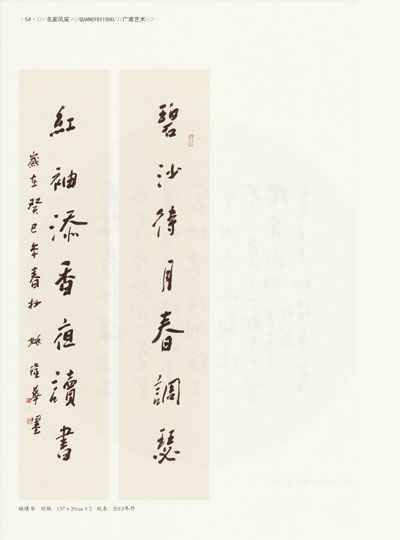 ·54· /// 名家风采 ///GUANGYAYISHU///广雅艺术///
碧沙待月春調瑟
紅袖添香夜讀書
歲在癸巳年春 姚隆華 墨
姚隆华 对联 137×29cm×2 纸本 2013年作